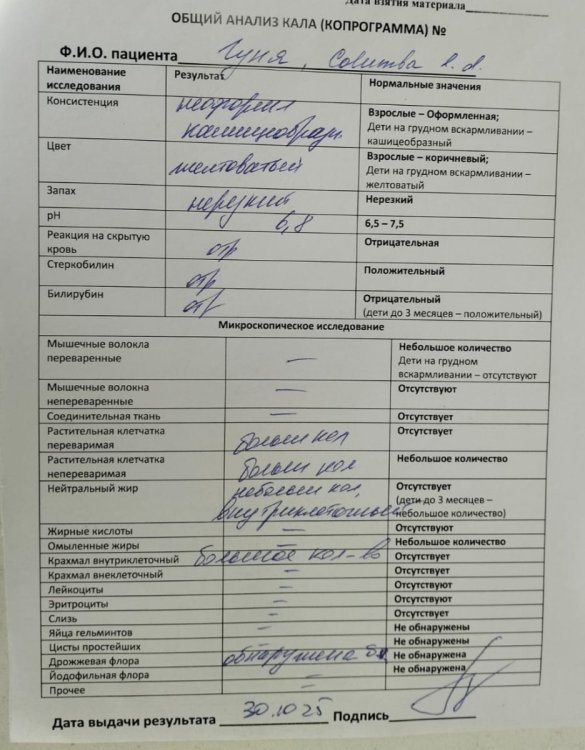 Дата взятия материала
ОБЩИЙ АНАЛИЗ КАЛА (КОПРОГРАММА) №
Ф.И.О. пациента Гуня,
Наименование исследования Результат Нормальные значения
Консистенция неоформл кашицеобразн Взрослые – Оформленная;
Дети на грудном вскармливании –
кашицеобразный
Цвет желтоватый Взрослые – коричневый;
Дети на грудном вскармливании –
желтоватый
Запах нерезкий Нерезкий
pH 6,8 6,5 – 7,5
Реакция на скрытую кровь отр Отрицательная
Стеркобилин отр Положительный
Билирубин отр Отрицательный
(дети до 3 месяцев – положительный)
Микроскопическое исследование
Мышечные волокла переваренные — Небольшое количество
Дети на грудном
вскармливании – отсутствуют
Мышечные волокна непереваренные — Отсутствуют
Соединительная ткань — Отсутствует
Растительная клетчатка переваримая больш кол Отсутствует
Растительная клетчатка непереваримая больш кол Небольшое количество
Нейтральный жир небольш кол, Отсутствует
(дети до 3 месяцев –
небольшое количество)
Жирные кислоты — Отсутствуют
Омыленные жиры — Небольшое количество
Крахмал внутриклеточный большое кол-во Отсутствует
Крахмал внеклеточный — Отсутствует
Лейкоциты — Отсутствуют
Эритроциты — Отсутствуют
Слизь — Отсутствует
Яйца гельминтов — Не обнаружены
Цисты простейших — Не обнаружены
Дрожжевая флора обнаружена Не обнаружена
Йодофильная флора — Не обнаружена
Прочее —
Дата выдачи результата 30.10.25 Подпись